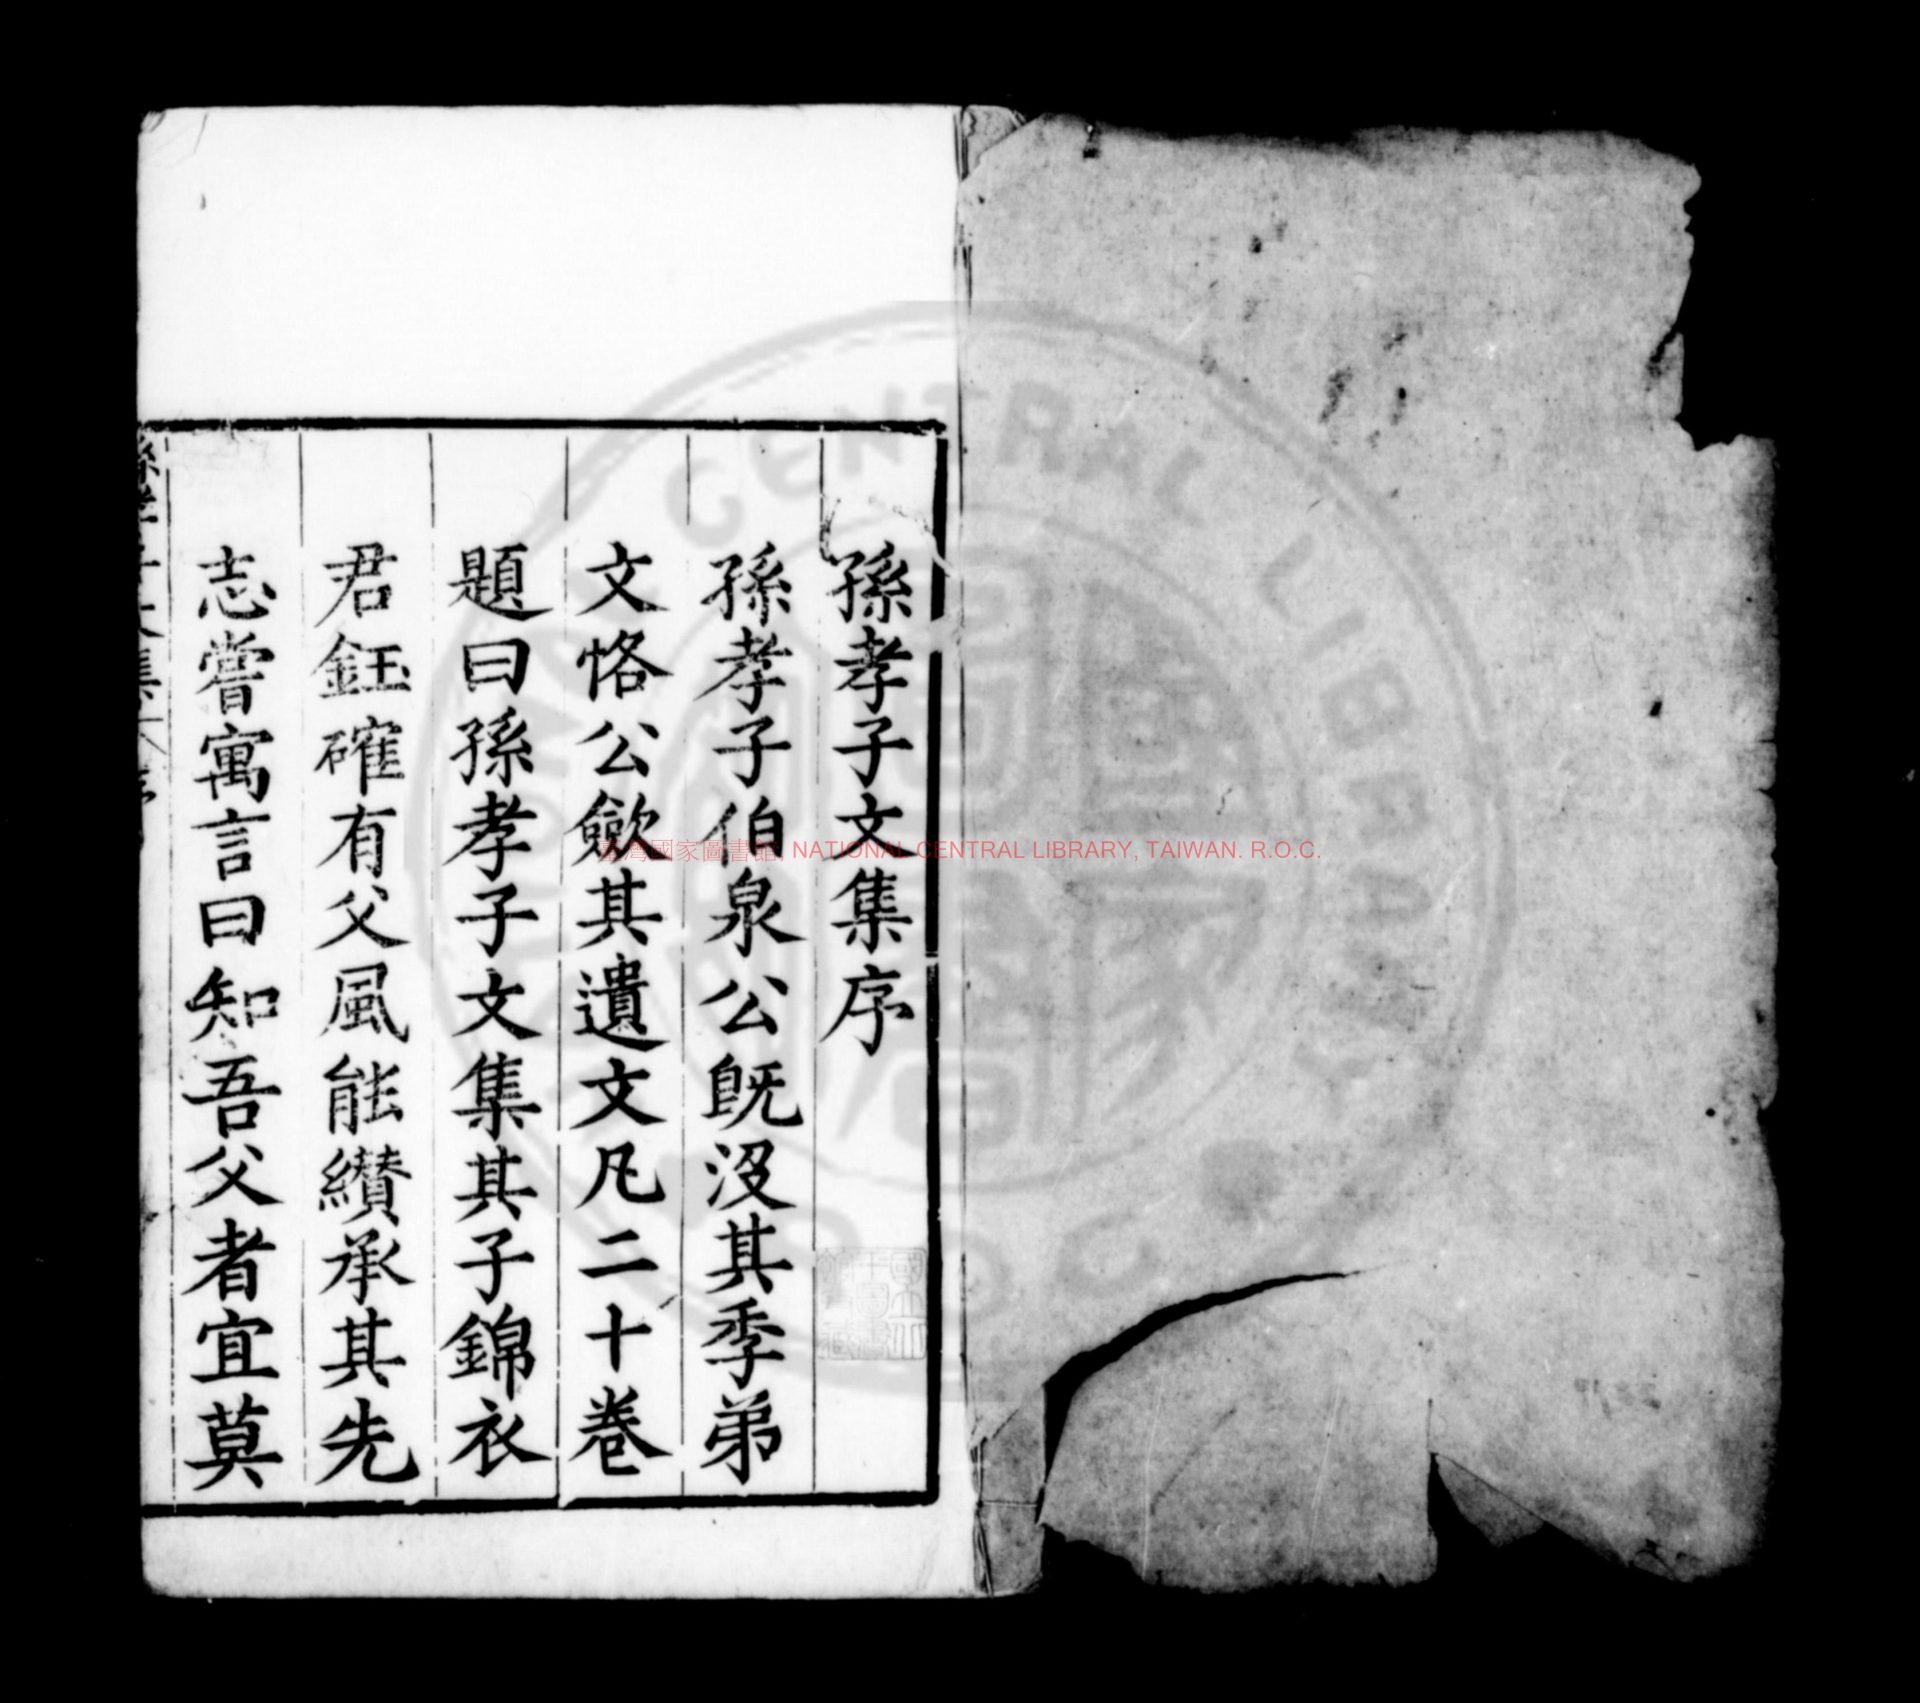 孫孝子文集序
孫孝子伯泉公旣沒其季弟
文恪公歛其遺文凡二十卷
題曰孫孝子文集其子錦衣
君鈺確有父風能纘承其先
志嘗寓言曰知吾父者宜莫
孫孝子文集 序
臺灣國家圖書館, NATIONAL CENTRAL LIBRARY, TAIWAN. R.O.C.
CENTRAL LIBRARY